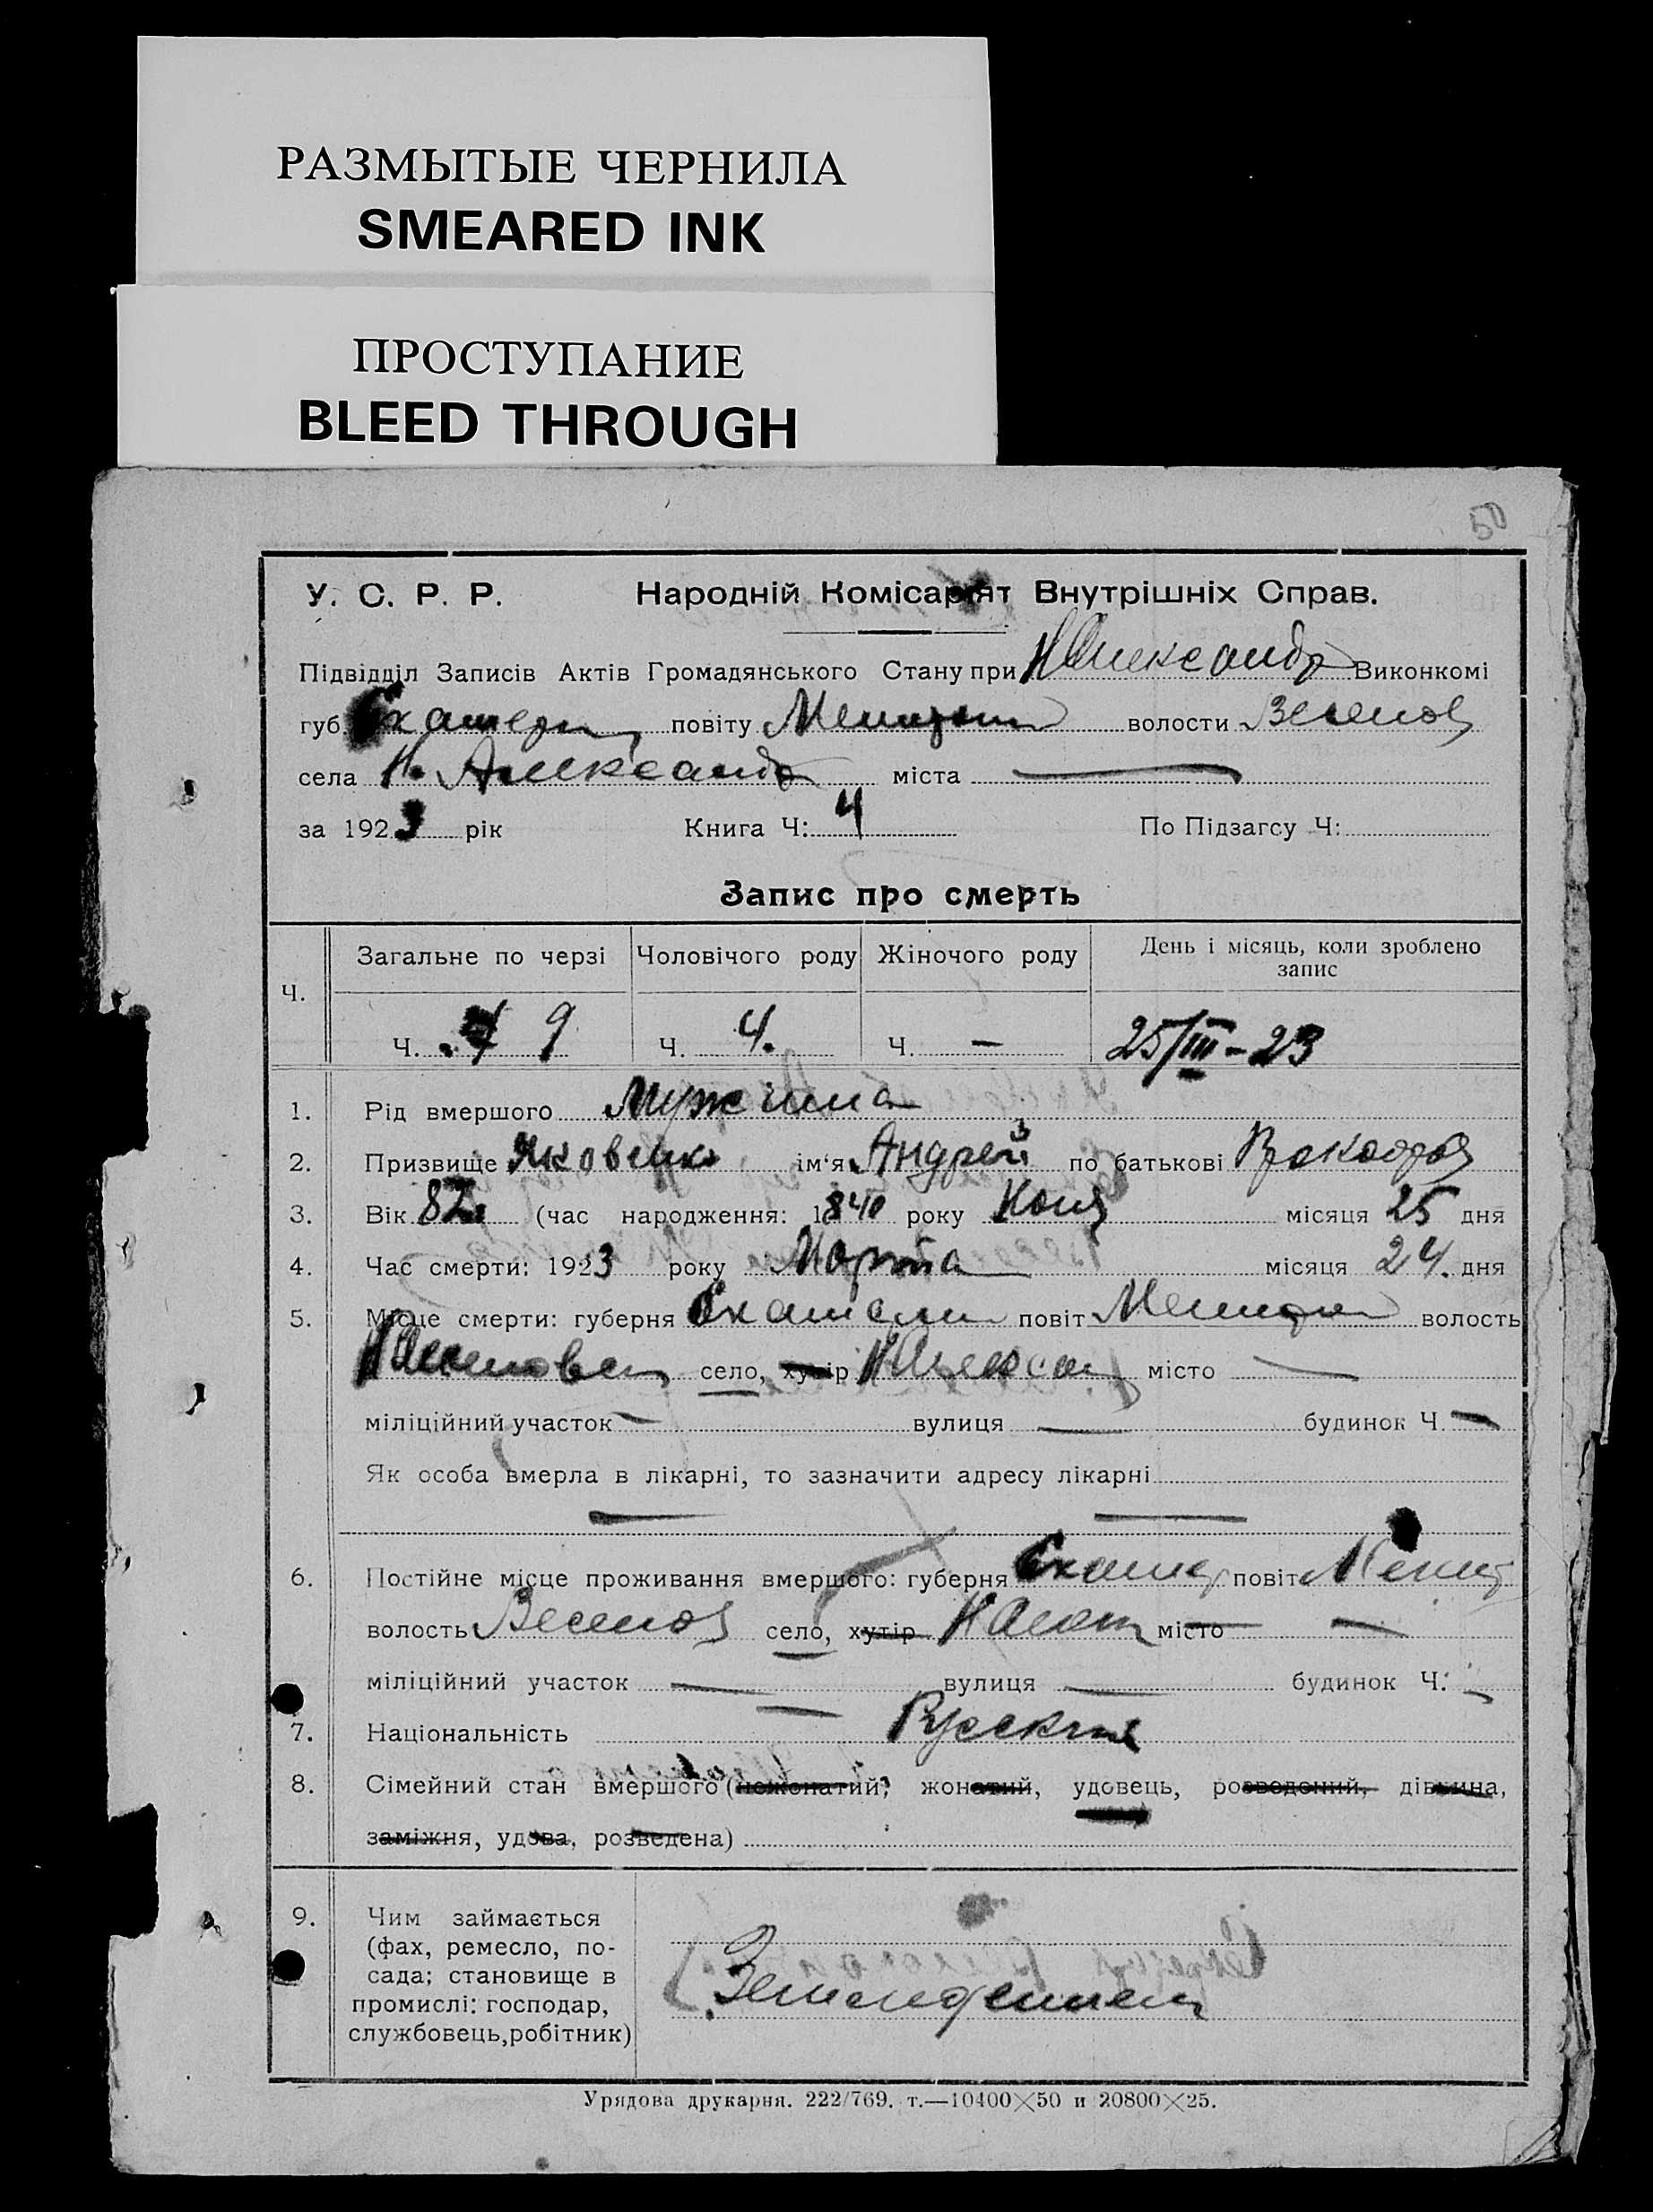 РАЗМЫТЫЕ ЧЕРНИЛА
SMEARED INK
ПРОСТУПАНИЕ
BLEED THROUGH
50
У. С. Р. Р. Народній Комісаріят Внутрішніх Справ.
Підвідділ Записів Актів Громадянського Стану при Н Александр Виконкомі
губ. Екатерин повіту Мелитоп волости Веселов
села Н. Александр міста —
за 1923 рік Книга Ч: 4 По Підзагсу Ч:
Запис про смерть
Ч. Загальне по черзі Чоловічого роду Жіночого роду День і місяць, коли зроблено запис
Ч. 9 Ч. 4. Ч. — 25/III-23
1. Рід вмершого Мужчина
2. Призвище Яковенко ім'я Андрей по батькові Прокофов
3. Вік 82 (час народження: 1840 року місяця 25 дня
4. Час смерти: 1923 року Марта місяця 24. дня
5. Місце смерти: губерня Екатерин повіт Мелитоп волость
село, хутір Н Алексан місто —
міліційний участок — вулиця — будинок Ч. —
Як особа вмерла в лікарні, то зазначити адресу лікарні
— —
6. Постійне місце проживання вмершого: губерня Екатер повіт Мелит
волость Веселов село, хутір місто —
міліційний участок — вулиця — будинок Ч: —
7. Національність Русский
8. Сімейний стан вмершого (нежонатий, жонатий, удовець, розведений, дівчина,
заміжня, удова, розведена)
9. Чим займається
(фах, ремесло, по-
сада; становище в
промислі: господар,
службовець, робітник)
Земледелец
Урядова друкарня. 222/769. т.—10400×50 и 20800×25.